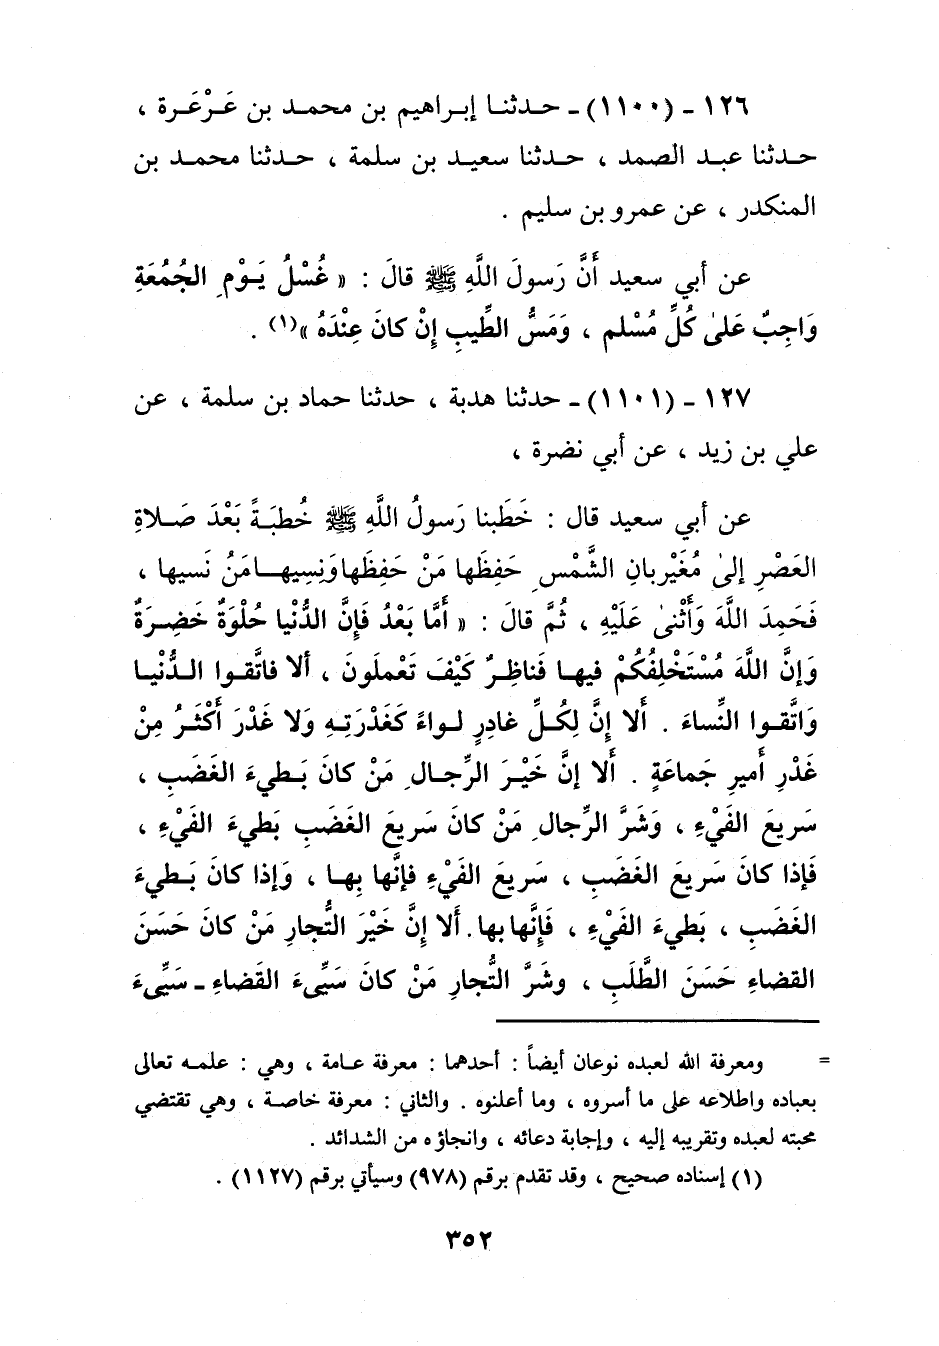 ١٢٦ - (١١٠٠) - حدثنا إبراهيم بن محمد بن عَرْعَرة ،
حدثنا عبد الصمد ، حدثنا سعيد بن سلمة ، حدثنا محمد بن
المنكدر ، عن عمرو بن سليم .
عن أبي سعيد أَنَّ رَسولَ اللَّهِ ﷺ قالَ : « غُسْلُ يَوْمِ الجُمُعَةِ
وَاجِبٌ عَلىٰ كُلِّ مُسْلمٍ ، وَمَسُّ الطِّيبِ إِنْ كانَ عِنْدَهُ »(١) .
١٢٧ - (١١٠١) - حدثنا هدبة ، حدثنا حماد بن سلمة ، عن
علي بن زيد ، عن أبي نضرة ،
عن أبي سعيد قال : خَطَبنا رَسولُ اللَّهِ ﷺ خُطبَةً بَعْدَ صَلاةِ
العَصْرِ إِلىٰ مُغَيْرِبانِ الشَّمْسِ حَفِظَها مَنْ حَفِظَها وَنِسِيها مَنُ نَسيها ،
فَحَمِدَ اللَّهَ وَأَثْنىٰ عَلَيْهِ ، ثُمَّ قالَ : « أَمَّا بَعْدُ فَإِنَّ الدُّنْيا حُلْوَةٌ خَضِرَةٌ
وَإِنَّ اللَّهَ مُسْتَخْلِفُكُمْ فيها فَناظِرٌ كَيْفَ تَعْمَلونَ ، ألا فاتَّقوا الدُّنْيا
وَاتَّقوا النِّساءَ . أَلا إِنَّ لِكُلِّ غادِرٍ لواءً كَغَدْرَتِهِ وَلا غَدْرَ أَكْثَرُ مِنْ
غَدْرِ أَميرِ جَماعَةٍ . أَلا إنَّ خَيْرَ الرِّجالِ مَنْ كانَ بَطيءَ الغَضَبِ ،
سَريعَ الفَيْءِ ، وَشَرَّ الرِّجالِ مَنْ كانَ سَريعَ الغَضَبِ بَطيءَ الفَيْءِ ،
فَإذا كانَ سَريعَ الغَضَبِ ، سَريعَ الفَيْءِ فإنَّها بِها ، وَإذا كانَ بَطيءَ
الغَضَبِ ، بَطيءَ الفَيْءِ ، فَإِنَّها بها . أَلا إِنَّ خَيْرَ التُّجارِ مَنْ كانَ حَسَنَ
القضاءِ حَسَنَ الطَّلَبِ ، وشَرَّ التُّجارِ مَنْ كانَ سَيِّىءَ القَضاءِ - سَيِّىءَ
= ومعرفة الله لعبده نوعان أيضاً : أحدهما : معرفة عامة ، وهي : علمه تعالى
بعباده واطلاعه على ما أسروه ، وما أعلنوه . والثاني : معرفة خاصة ، وهي تقتضي
محبته لعبده وتقريبه إليه ، وإجابة دعائه ، وانجاؤه من الشدائد .
(١) إسناده صحيح ، وقد تقدم برقم (٩٧٨) وسيأتي برقم (١١٢٧) .
٣٥٢